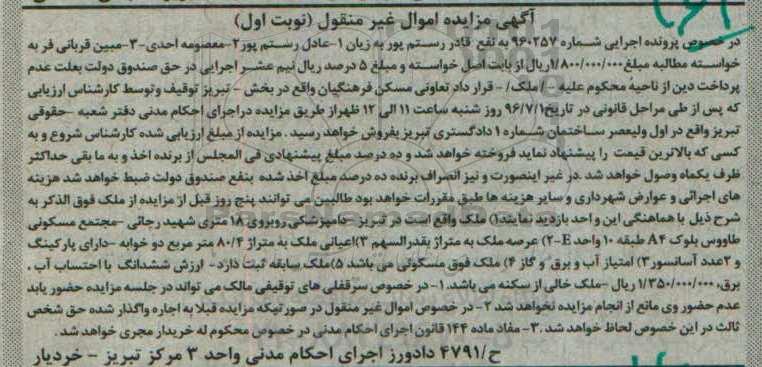 آگهی مزایده اموال غیر منقول (نوبت اول)
در خصوص پرونده اجرایی شماره ۹۶۰۲۵۷ به نفع قادر رستم پور به زیان ۱-عادل رستم پور ۲-معصومه احدی-۳-مبین قربانی فر به
خواسته مطالبه مبلغ ۱/۸۰۰/۰۰۰/۰۰۰ریال از بابت اصل خواسته و مبلغ ۵ درصد ریال نیم عشر اجرایی در حق صندوق دولت بعلت عدم
پرداخت دین از ناحیهٔ محکوم علیه -/ ملک/ - قرار داد تعاونی مسکن فرهنگیان واقع در بخش - تبریز توقیف وتوسط کارشناس ارزیابی
که پس از طی مراحل قانونی در تاریخ۹۶/۷/۱ روز شنبه ساعت ۱۱ الی ۱۲ ظهراز طریق مزایده دراجرای احکام مدنی دفتر شعبه -حقوقی
تبریز واقع در اول ولیعصر ساختمان شماره ۱ دادگستری تبریز بفروش خواهد رسید . مزایده از مبلغ ارزیابی شده کارشناس شروع و به
کسی که بالاترین قیمت را پیشنهاد نماید فروخته خواهد شد و ده درصد مبلغ پیشنهادی فی المجلس از برنده اخذ و به ما بقی حداکثر
ظرف یکماه وصول خواهد شد .در غیر اینصورت و نیز انصراف برنده ده درصد مبلغ اخذ شده بنفع صندوق دولت ضبط خواهد شد هزینه
های اجرائی و عوارض شهرداری و سایر هزینه ها طبق مقررات خواهد بود طالبین می توانند پنج روز قبل از مزایده از ملک فوق الذکر به
شرح ذیل با هماهنگی این و احد بازدید نمایند۱) ملک واقع است در تبریز - دامپزشکی روبروی ۱۸ متری شهید رجائی -مجتمع مسکونی
طاووس بلوک A۴ طبقه ۱۰ واحد E-۲) عرصه ملک به متراژ بقدرالسهم ۳)اعیانی ملک به متراژ ۸۰/۴ متر مربع دو خوابه -دارای پارکینگ
و ۲عدد آسانسور۳) امتیاز آب و برق و گاز ۴) ملک فوق مسکونی می باشد ۵)ملک سابقه ثبت دارد- ارزش ششدانگ با احتساب آب ،
برق، ۱/۳۵۰/۰۰۰/۰۰۰ ریال -ملک خالی از سکنه می باشد. ۱- در خصوص سرقفلی های توقیفی مالک می تواند در جلسه مزایده حضور یابد
عدم حضور وی مانع از انجام مزایده نخواهد شد ۲ - در خصوص اموال غیر منقول در صورتیکه مزایده قبلا به اجاره واگذار شده حق شخص
ثالث در این خصوص لحاظ خواهد شد .۳- مفاد ماده ۱۴۴ قانون اجرای احکام مدنی در خصوص محکوم له خریدار مجری خواهد شد .
ح/۴۷۹۱ دادورز اجرای احکام مدنی واحد ۳ مرکز تبریز - خردیار